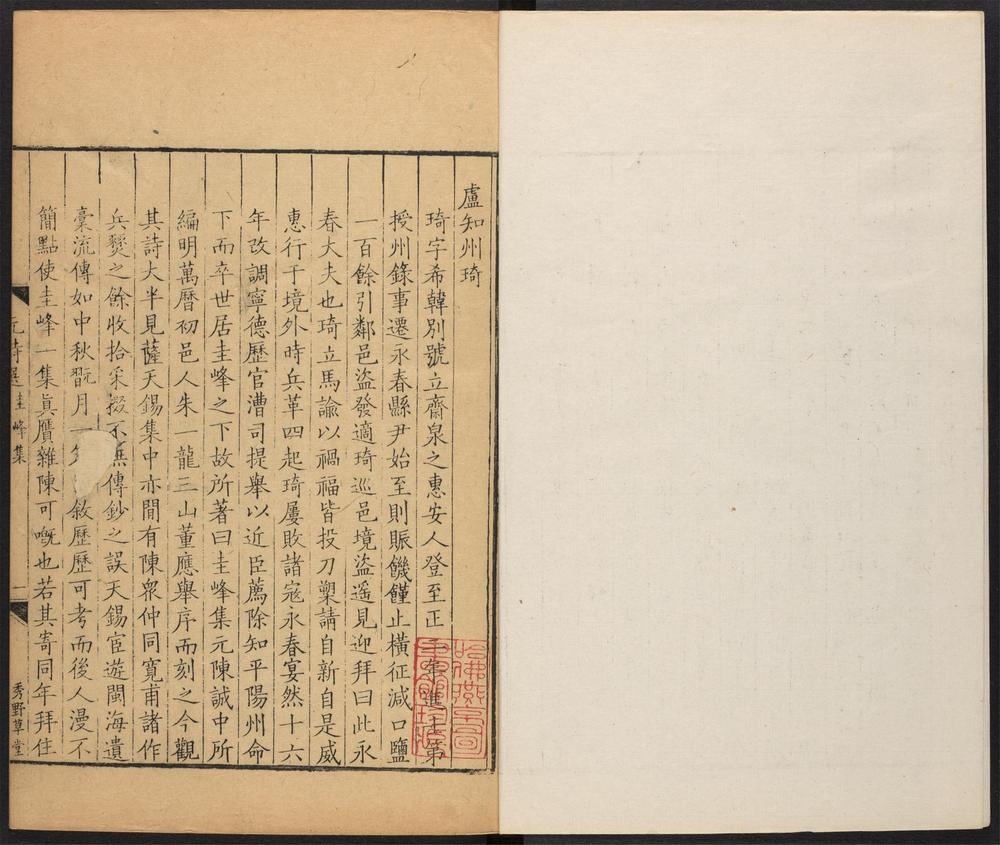 盧知州琦
琦字希韓別號立齋泉之惠安人登至正二年進士第
授州錄事遷永春縣尹始至則賑饑饉止橫征減口鹽
一百餘引鄰邑盜發適琦巡邑境盜遥見迎拜曰此永
春大夫也琦立馬諭以禍福皆投刀槊請自新自是威
惠行于境外時兵革四起琦屢敗諸寇永春宴然十六
年改調寧德歷官漕司提舉以近臣薦除知平陽州命
下而卒世居圭峰之下故所著曰圭峰集元陳誠中所
編明萬曆初邑人朱一龍三山董應舉序而刻之今觀
其詩大半見薩天錫集中亦間有陳衆仲同寛甫諸作
兵燹之餘收拾采掇不無傳鈔之誤天錫宦遊閩海遺
稾流傳如中秋翫月一敘歷歷可考而後人漫不
簡點使圭峰一集真贋雜陳可嘅也若其寄同年拜住
元詩選 圭峰集
一
秀野草堂
哈佛燕京圖